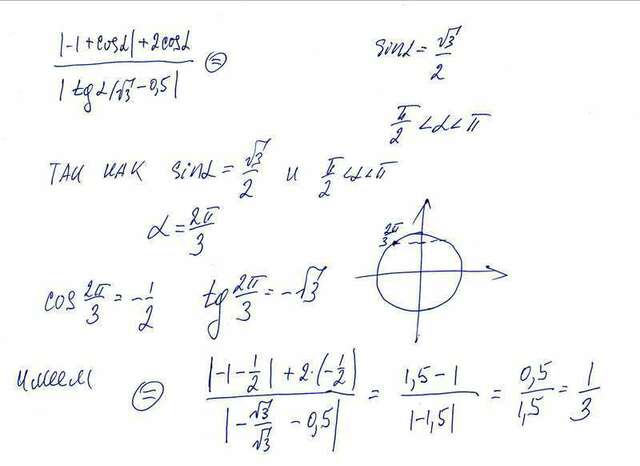 |-1+cosα|+2cosα / |tgα/√3-0,5| ⊜
sinα = √3/2
π/2 < α < π
ТАК КАК sinα = √3/2 и π/2 < α < π
α = 2π/3
2π/3
cos 2π/3 = -1/2 tg 2π/3 = -√3
ИМЕЕМ ⊜ |-1-1/2|+2·(-1/2) / |-√3/√3 - 0,5| = 1,5-1 / |-1,5| = 0,5/1,5 = 1/3